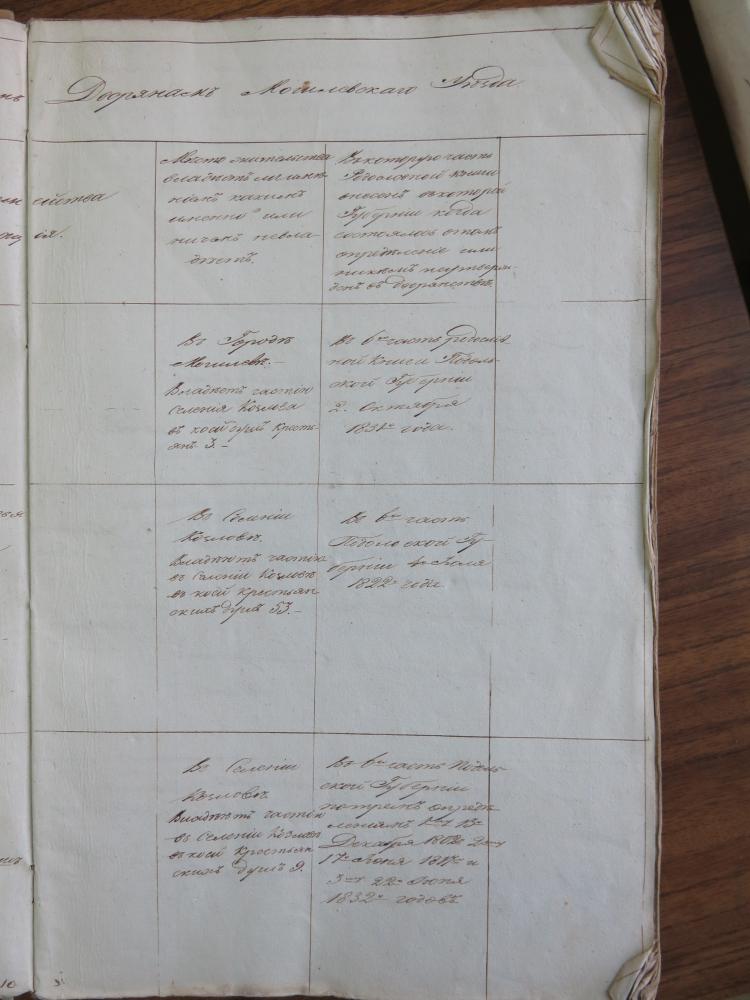 Дворянамъ Могилевскаго Уѣзда
ейства
Мѣсто жительства
владѣетъ ли имѣ-
ніемъ какимъ
именно или
ничемъ невла-
дѣетъ.
Въ которую часть
Родословной книги
внесенъ и которой
Губерніи когда
состоялось о томъ
опредѣленіе или
Въ Городѣ
Могилевѣ.—
Владѣетъ частію
Селенія Козлова
въ коей душъ кресть-
янъ 3.—
Въ 6ю часть родослов
ной Книги Подоль-
ской Губерніи
2. Октября
года.
Въ Селеніи
Козловѣ.
Владѣетъ частію
въ Селеніи Козловѣ
въ коей крестьян
скихъ душъ 53.—
Въ 6ю часть
Подольской Гу-
берніи
1822го года
Въ Селеніи
Козловѣ
Владѣетъ частію
въ Селеніи Козловѣ
въ коей крестьян
скихъ душъ 9.
Въ 6ю часть Подоль-
ской Губерніи
потремъ опредѣ-
леніямъ
Декабря
17го Іюня
22го Іюня
1832го годовъ